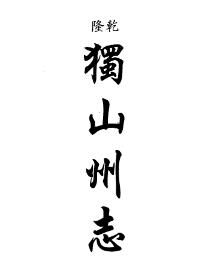 乾隆
獨山州志